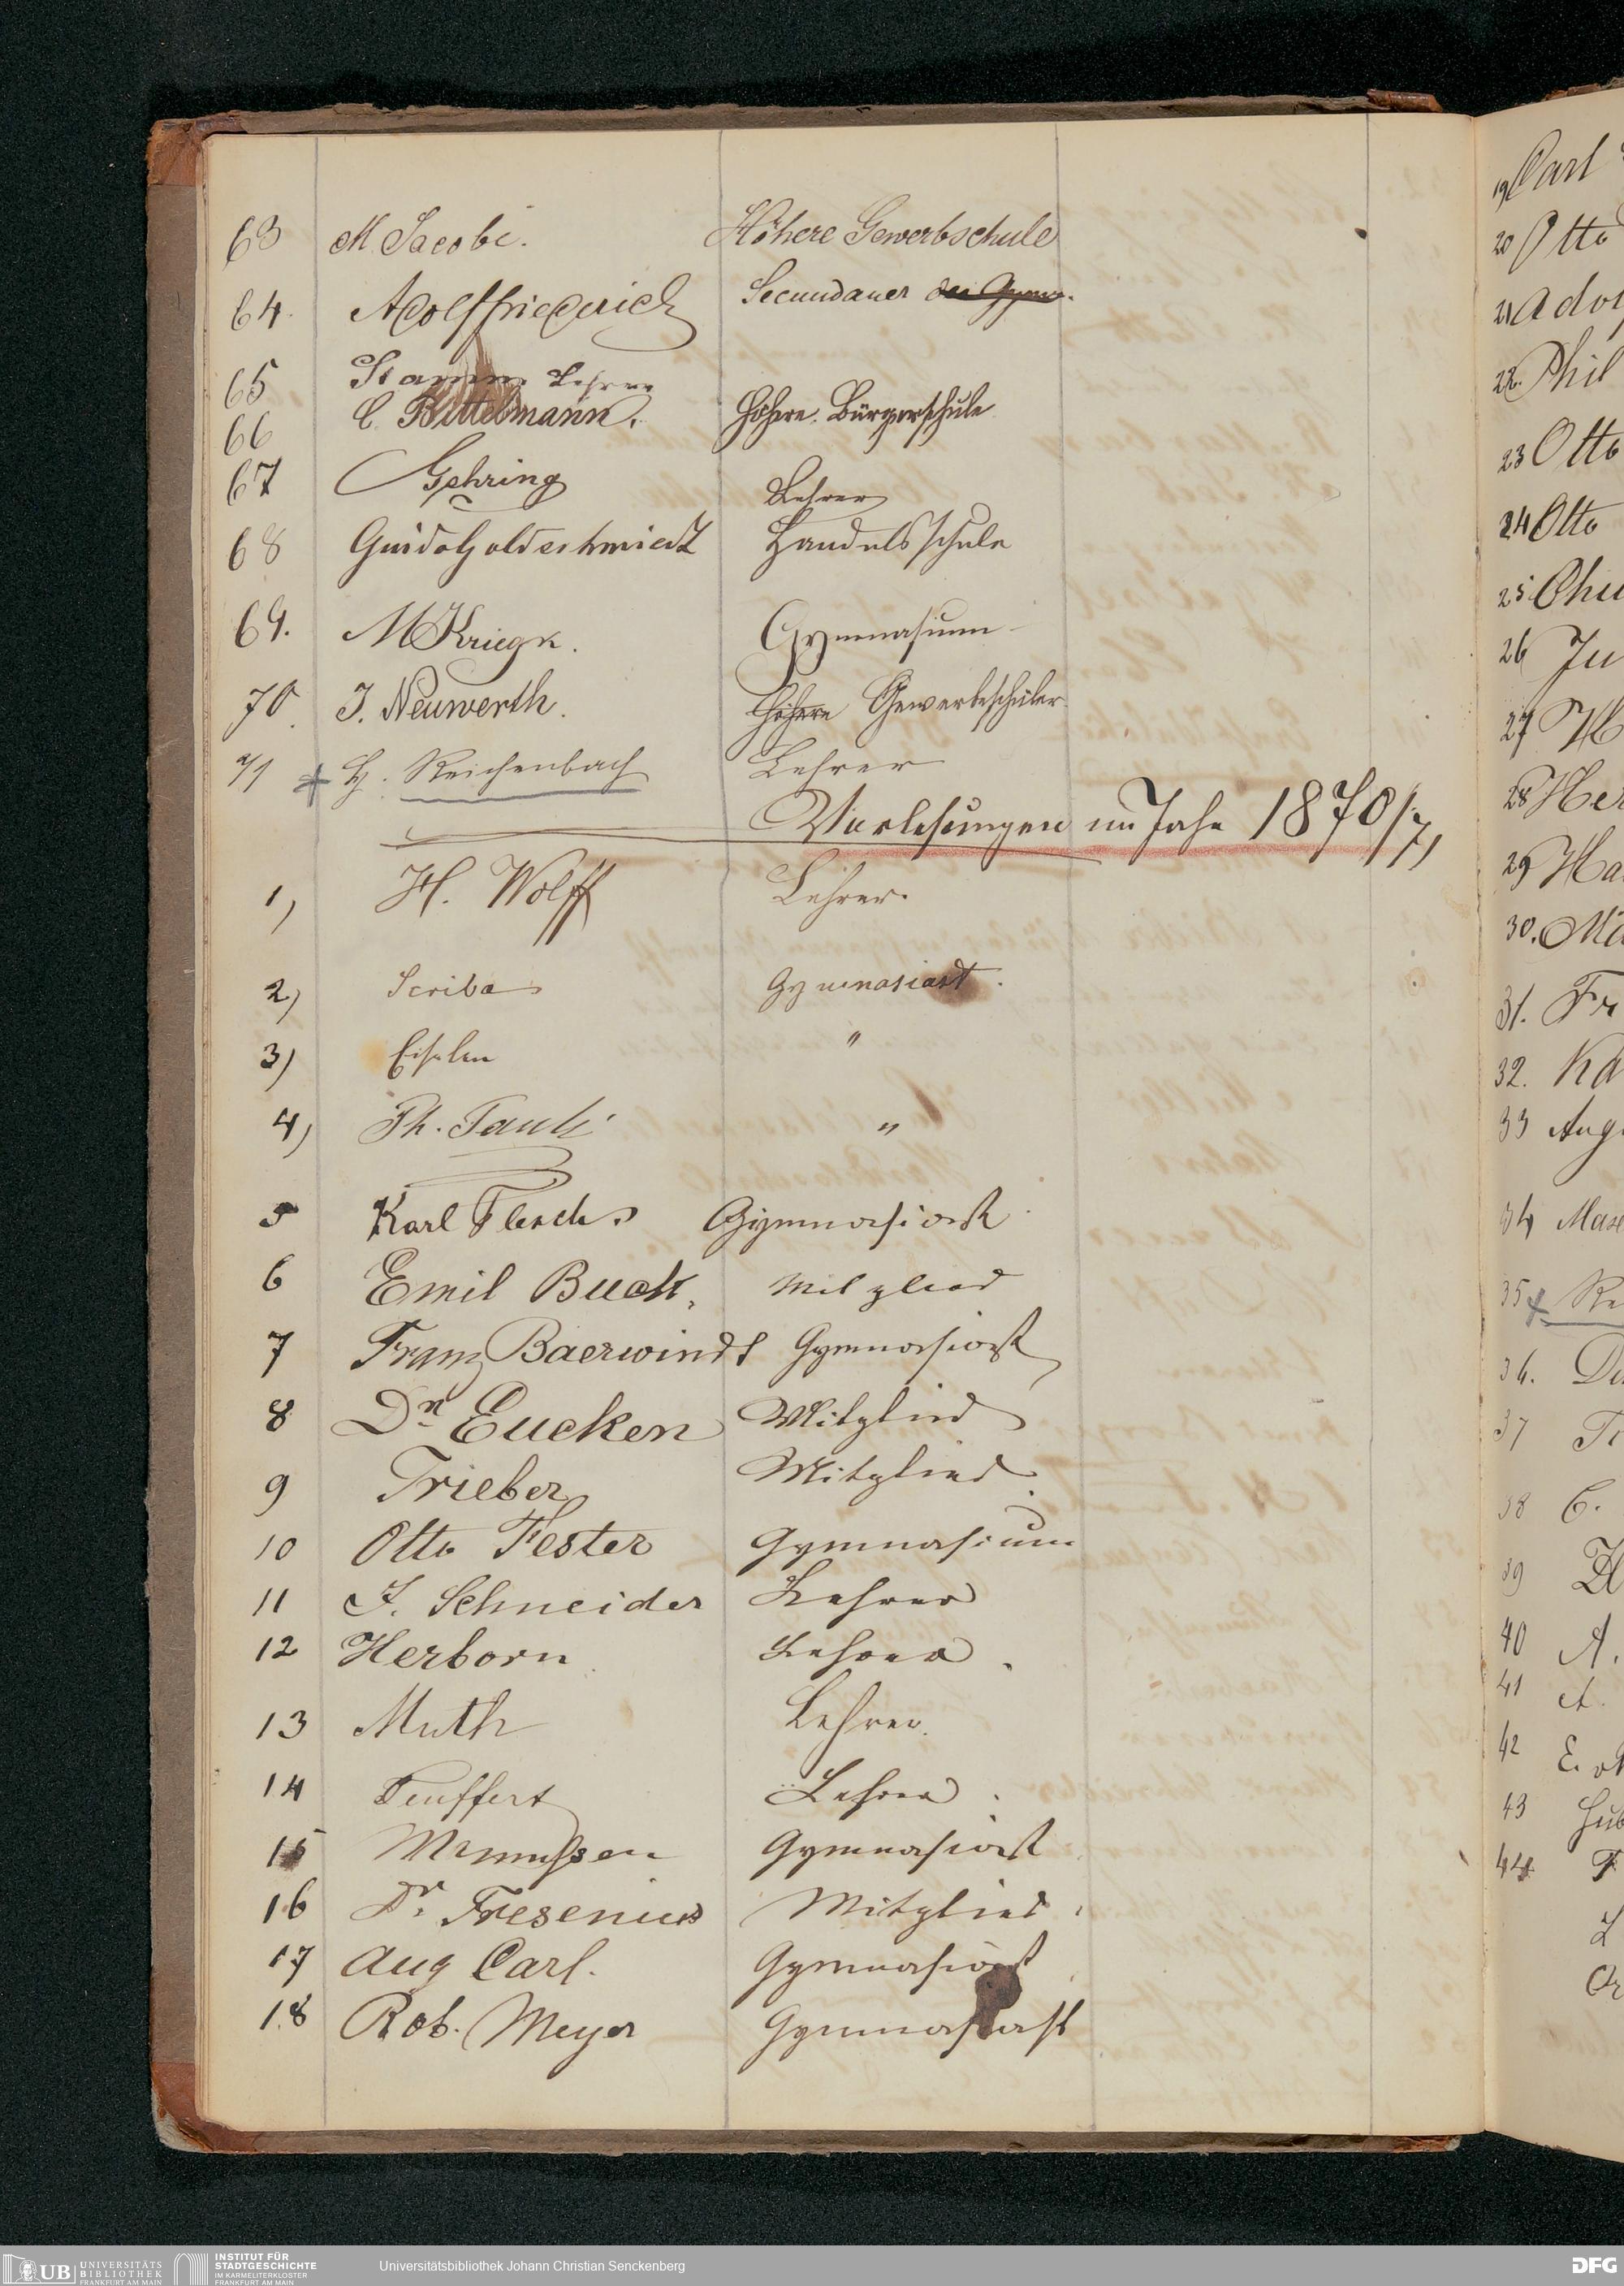 63 M Jacobi. Höhere Gewerbschule
64. Adolf Friederich Secundaner des Gymn.
65 Stamm. Lehrer
66 C. Bittelmann. Höhere Bürgerschule
67 Gehring Lehrer
68 Guido Goldschmiedt Handelsschule
69. M Kriegk. Gymnasium
70. J. Neuwerth. Höhere Gewerbeschüler
71 H. Reichenbach Lehrer
Vorlesungen im Jahr 1870/71
1) H. Wolff Lehrer.
2) Scriba Gymnasiast.
3) Eiselen "
4) Ph. Pauli "
5 Karl Flesch. Gymnasiast
6 Emil Buck. Mitglied
7 Franz Baerwindt Gymnasiast
8 Dr Eucken Mitglied
9 Trieber Mitglied.
10 Otto Fester Gymnasium
11 J. Schneider Lehrer
12 Herborn Lehrer.
13 Muth Lehrer.
14 Lehrer.
15 Gymnasiast
16 Dr. Fresenius Mitglied.
17 Aug Carl. Gymnasiast
18 Rob. Meyer Gymnasiast
19) Carl
20 Otto
21 Adol
22. Phil
23 Otto
24 Otto
25
26 Ju
27 H
28 Her
29 Ha
30. Ma
31. Fr
32. Ka
33 Aug
34 Max
35 Re
36.
37
38 C.
39
40 A.
41
42 E.
43
44 F
UB UNIVERSITÄTS
BIBLIOTHEK
FRANKFURT AM MAIN
INSTITUT FÜR
STADTGESCHICHTE
IM KARMELITERKLOSTER
FRANKFURT AM MAIN
Universitätsbibliothek Johann Christian Senckenberg
DFG